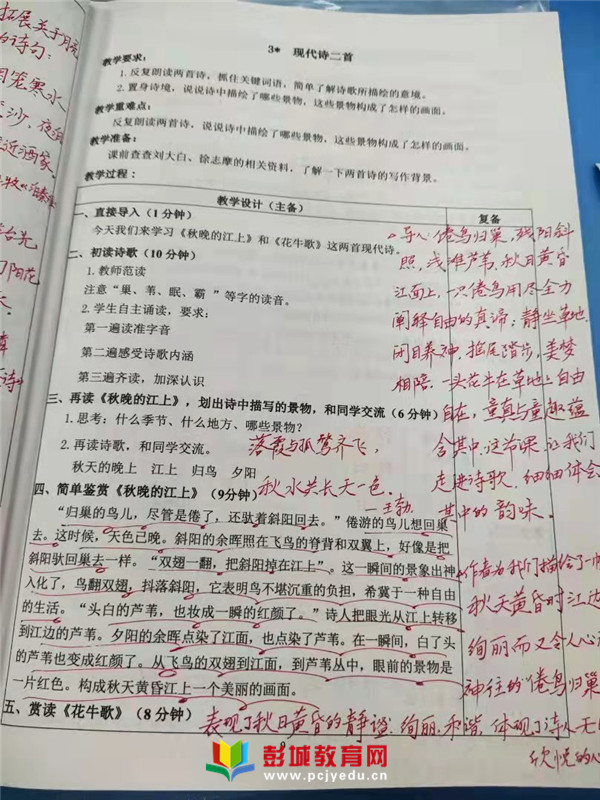 拓展关于月亮
的诗句:
笼寒水
沙,夜泊
近酒家
3* 现代诗二首
教学要求:
1.反复朗读两首诗,抓住关键词语,简单了解诗歌所描绘的意境。
2.置身诗境,说说诗中描绘了哪些景物,这些景物构成了怎样的画面。
教学重难点:
反复朗读两首诗,说说诗中描绘了哪些景物,这些景物构成了怎样的画面。
教学准备:
课前查查刘大白、徐志摩的相关资料,了解一下两首诗的写作背景。
教学过程:
教学设计(主备)
一、直接导入(1 分钟)
今天我们来学习《秋晚的江上》和《花牛歌》这两首现代诗。
二、初读诗歌(10 分钟)
1.教师范读
注意“巢、苇、眠、霸 ”等字的读音。
2.学生自主诵读,要求:
第一遍读准字音
第二遍感受诗歌内涵
第三遍齐读,加深认识
三、再读《秋晚的江上》,划出诗中描写的景物,和同学交流(6 分钟)
1.思考:什么季节、什么地方、哪些景物?
2.再读诗歌,和同学交流。
落霞与孤鹜齐飞,
秋天的晚上 江上 归鸟 夕阳
四、简单鉴赏《秋晚的江上》(9分钟)
秋水共长天一色。
—王勃
“归巢的鸟儿,尽管是倦了,还驮着斜阳回去。”倦游的鸟儿想回巢
去。这时候,天色已晚。斜阳的余晖照在飞鸟的脊背和双翼上,好像是把
斜阳驮回巢去一样。“双翅一翻,把斜阳掉在江上”。这一瞬间的景象出神
入化了,鸟翻双翅,抖落斜阳,它表明鸟不堪沉重的负担,希冀于一种自由
的生活。“头白的芦苇,也妆成一瞬的红颜了。”诗人把眼光从江上转移
到江边的芦苇。夕阳的余晖点染了江面,也点染了芦苇。在一瞬间,白了头
的芦苇也变成红颜了。从飞鸟的双翅到江面,到芦苇丛中,眼前的景物是
一片红色。构成秋天黄昏江上一个美丽的画面。
五、赏读《花牛歌》(8 分钟)
表现了秋日黄昏的静谧、绚丽、和谐,体现了诗人无
欣悦的心
复备
导入:倦鸟归巢,残阳斜
照,浅滩芦苇,秋日黄昏
江面上,一只倦鸟用尽全力
阐释自由的真谛;静坐草地,
闭目养神,摇尾踏步,美梦
相陪,一头花牛在草地上自由
自在,童真与童趣蕴
含其中,这节课,让我们
走进诗歌,细细体会
其中的韵味。
作者为我们描绘了一
秋天黄昏时江边
绚丽而又令人心
神往的“倦鸟归巢
彭城教育网
www.pcjyedu.cn